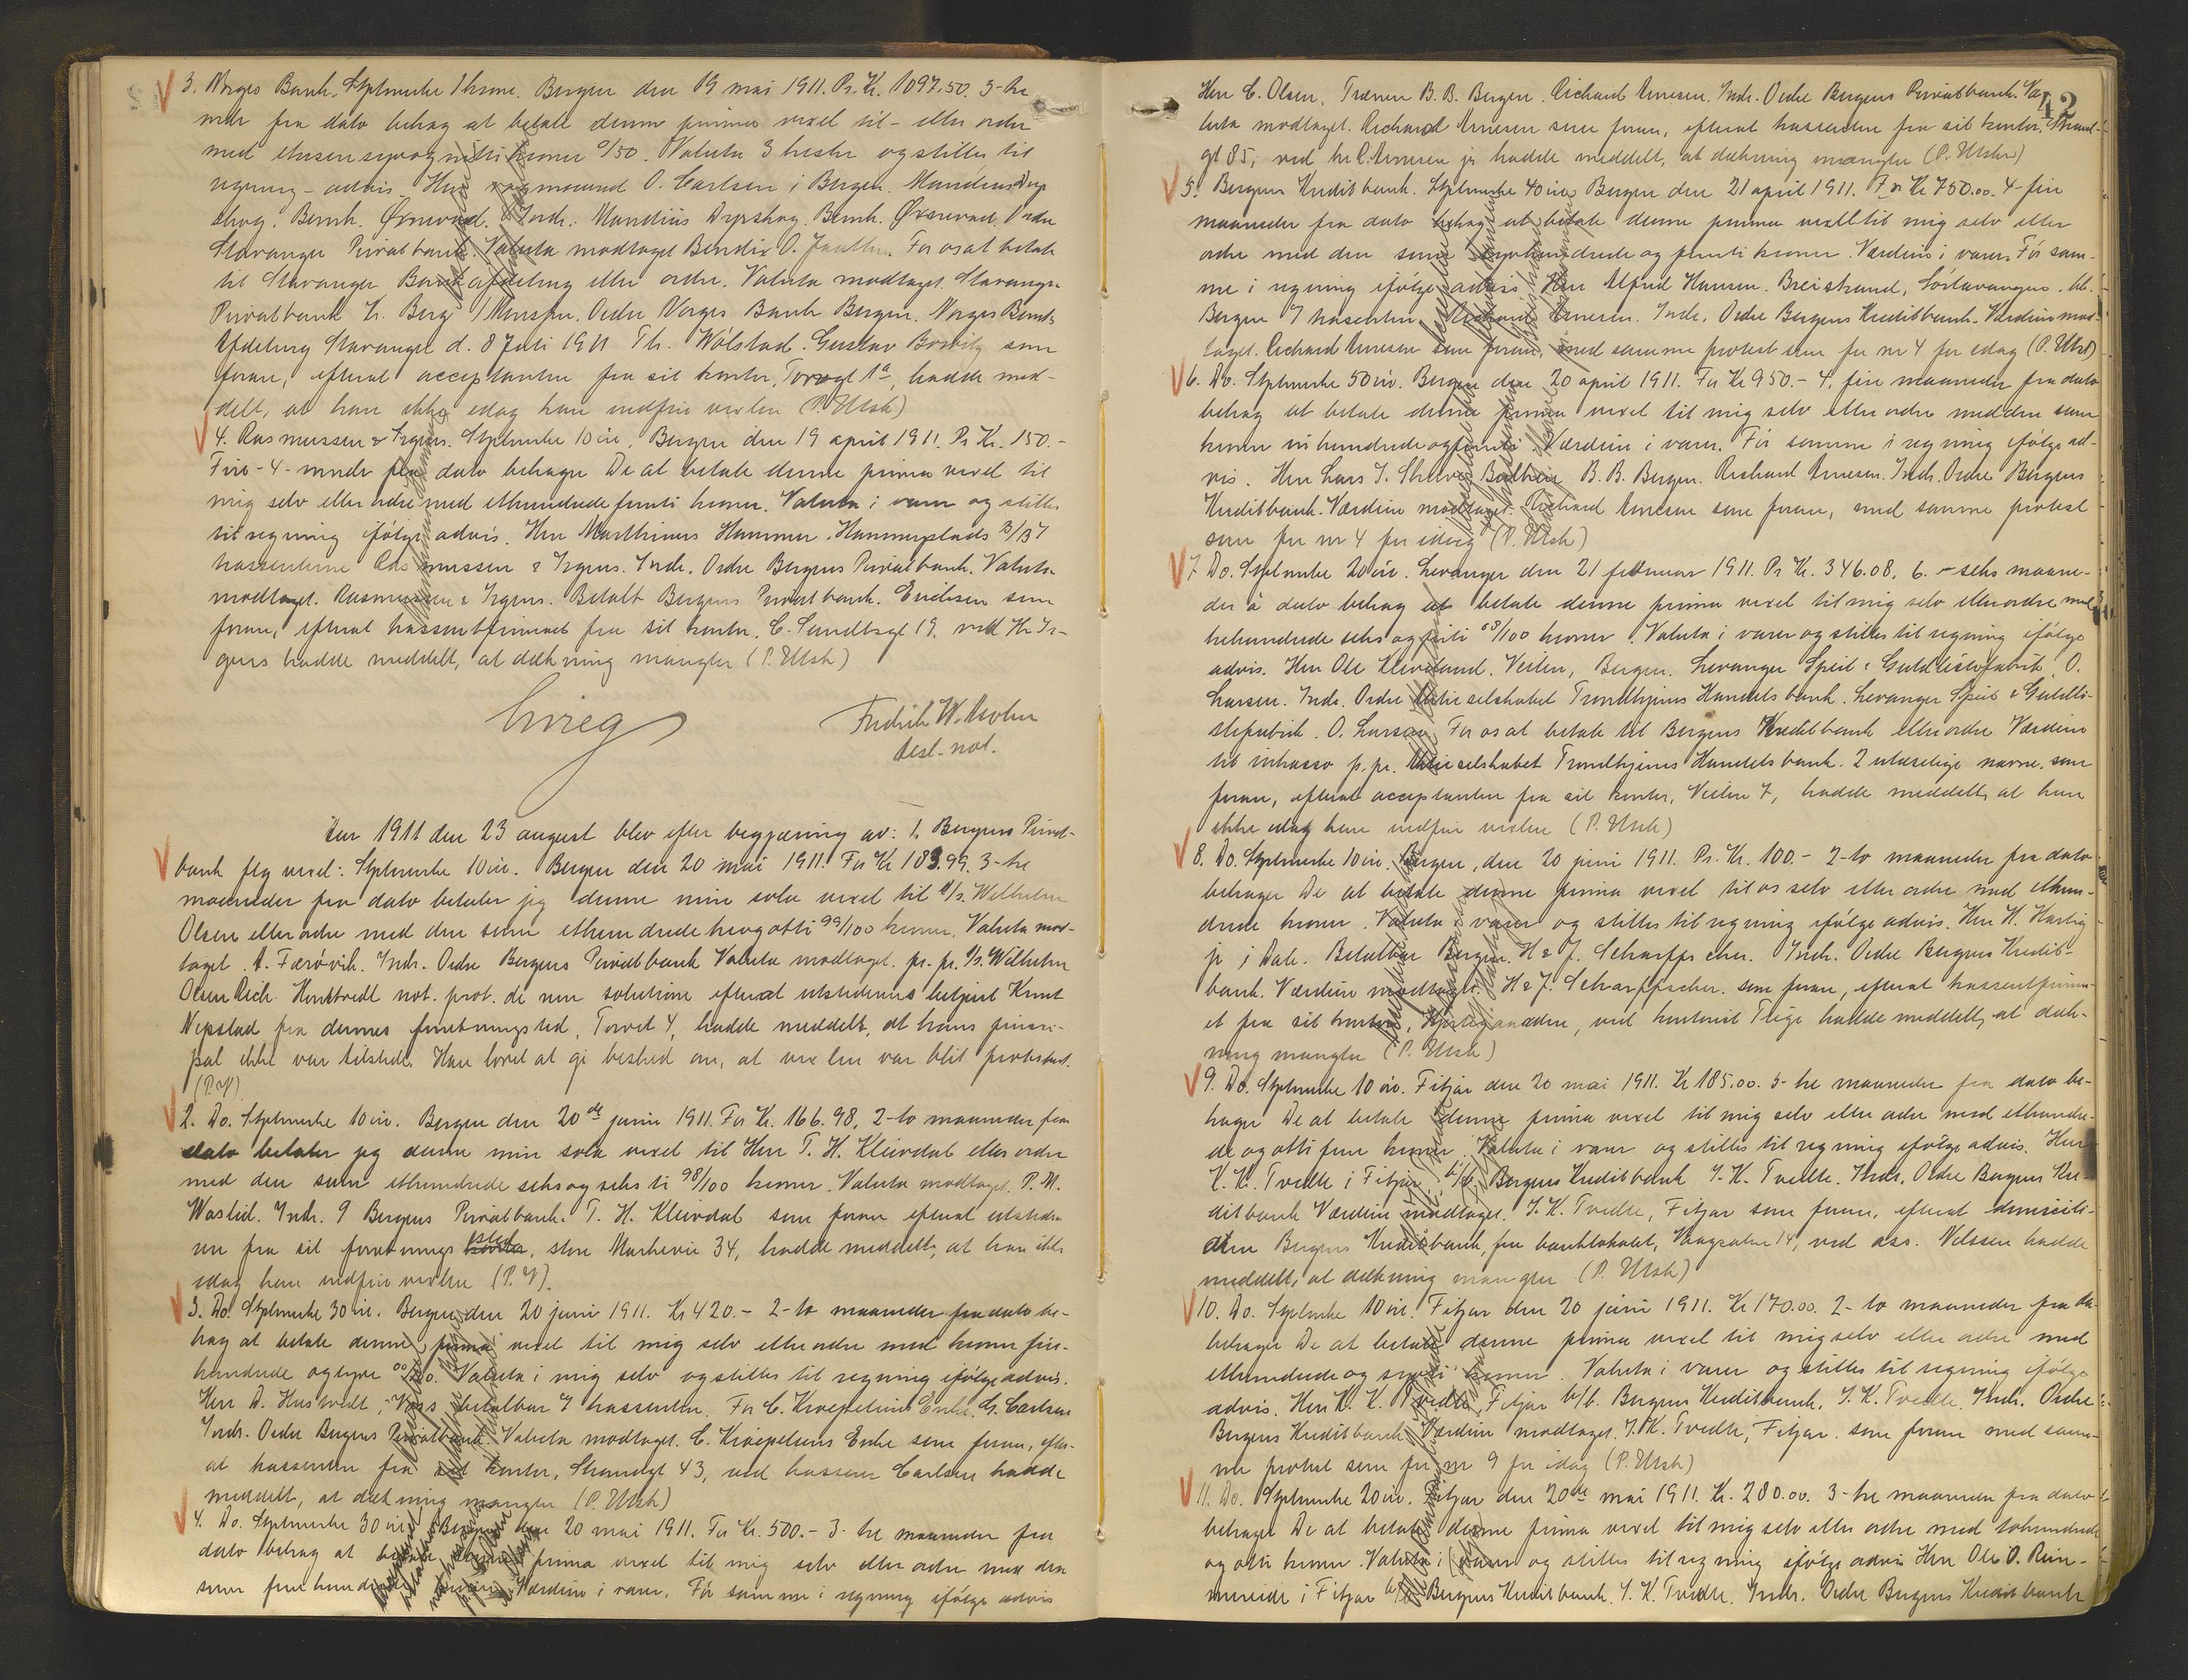 3. Norges Bank. Stplmerke 1 krone. Bergen den 19 mai 1911. Pr. Kr. 1097.50. 3-tre
mdr fra dato behag at betale denne prima vexel til - eller ordre
med kroner 0/50. Valuta 3 heste og stilles til
regning - advis. Herr O. Carlsen i Bergen. Mandius Dyr
skog. Bernh. Ørnevad. Indr. Mandius Dyrskog. Bernh. Ørnevad. Ordre
Stavanger Privatbank. Valuta modtaget Bendix O. For os at betale
til Stavanger Bankafdeling eller ordre. Valuta modtaget. Stavanger
Privatbank K. Berg Ordre Norges Bank Bergen. Norges Banks
Afdeling Stavanger d. 8 Juli 1911 Th. Wölstad. Gustav som
foran, efterat acceptanten fra sit kontor, Torvgt 1a, hadde med-
delt, at han ikke idag kan indfri vexlen (P. Utsk)
4. Rasmussen & Irgens. Stplmerke 10 øre. Bergen den 19 april 1911. Pr Kr. 150.-
Fire - 4 - mndr fra dato behager De at betale denne prima vexel til
mig selv eller ordre med ethundrede femti kroner. Valuta i varer og stilles
til regning ifølge advis. Herr Marthinus Hammer. Hammerplads B/B 7
kassenterne Rasmussen & Irgens. Indr. Ordre Bergens Privatbank. Valuta
modtaget. Rasmussen & Irgens. Betalt Bergens Privatbank. Erichsen som
foran, efterat kassentfirmaet fra sit kontor, C. Sundtsgt 19, ved Hr Ir-
gens hadde meddelt, at dækning mangler (P. Utsk)
Fredrik W.
desl. not.
Aar 1911 den 23 august blev efter begjæring av: 1. Bergens Privat-
bank flg vexel: Stplmerke 10 øre. Bergen den 20 mai 1911. For Kr 183.99. 3-tre
maaneder fra dato betaler jeg denne min sola vexel til A/S. Wilhelm
Olsen eller ordre med den sum ethundrede treogotti 99/100 kroner. Valuta mod-
taget. A. Færövik. Indr. Ordre Bergens Privatbank Valuta modtaget. pr. pr. A/S. Wilhelm
Olsen Rich. not. prot. de non solutione efterat utstederens betjent Knut
Nepstad fra dennes forretningssted, Torvet 4, hadde meddelt, at hans princi-
pal ikke var tilstede. Han lovet at gi besked om, at vexlen var blit protestert.
(P.V)
2. Do. Stplmerke 10 øre. Bergen den 20de juni 1911. For Kr. 166.98, 2-to maaneder fra
dato betaler jeg denne min sola vexel til Herr T. H. Kleivdal eller ordre
med den sum ethundrede seksogseksti 98/100 kroner. Valuta modtaget. P. M.
Waslid. Indr. Bergens Privatbank. T. H. Kleivdal som foran efterat utstede-
ren fra sit forretningssted, store Markevei 34, hadde meddelt, at han ikke
idag kan indfri vexlen (P. V).
3. Do. Stplmerke 30 øre. Bergen den 20 juni 1911. Kr 420.- 2-to maaneder fra dato be-
hag at betale denne prima vexel til mig selv eller ordre med kroner fire-
hundrede og tyve 00/100. Valuta i mig selv og stilles til regning ifølge advis.
Herr A. Hustvedt, Voss, betalbar kassenten. For C. Kroepeliens Enke, G. Carlsen
Indr. Ordre Bergens Privatbank. Valuta modtaget. C. Kroepeliens Enke som foran, efter-
at kassenten fra sit kontor, Strandgt 43, ved kasserer Carlsen hadde
meddelt, at dækning mangler (P. Utsk)
4. Do. Stplmerke 30 øre. Bergen den 20 mai 1911. For Kr. 500.- 3- tre maaneder fra
dato behag at betale denne prima vexel til mig selv eller ordre med den
sum femhundrede kroner. Værdien i varer. Før samme i regning ifølge advis
42
Herr C. Olsen, B. B. Bergen. Richard Arnesen. Indr. Ordre Bergens Privatbank. Va-
luta modtaget. Richard Arnesen som foran, efterat kassenten fra sit kontor, Strand-
gt 85, ved hr R. Arnesen jr hadde meddelt, at dækning mangler (P. Utskr)
5. Bergens Kreditbank. Stplmerke 40 øre. Bergen den 21 april 1911. For Kr 750.00. 4-fire
maaneder fra dato behag at betale denne prima vexel til mig selv eller
ordre med den sum syvhundrede og femti kroner. Værdien i varer. Før sam-
me i regning ifølge advis Herr Alfred Hansen. Breistrand,
Bergen kassenten. Richard Arnesen. Indr. Ordre Bergens Kreditbank. Værdien mod-
taget. Richard Arnesen som foran, med samme protest som for nr 4 for idag (P. Utsk)
6. Do. Stplmerke 50 øre. Bergen den 20 april 1911. For Kr 950.- 4. fire maaneder fra dato
behag at betale denne prima vexel til mig selv eller ordre med den sum
kroner nihundrede og femti. Værdien i varer. Før samme i regning ifølge ad-
vis. Herr Lars J. B. B. Bergen. Richard Arnesen. Indr. Ordre Bergens
Kreditbank. Værdien modtaget. Richard Arnesen som foran, med samme protest
som for nr 4 for idag (P. Utsk)
7. Do. Stplmerke 20 øre. Levanger den 21 februar 1911. Pr Kr. 346.08. 6. - seks maane-
der à dato behag at betale denne prima vexel til mig selv eller ordre med
trehundrede seks og firti 08/100 kroner. Valuta i varer og stilles til regning ifølge
advis. Herr Ole Kleveland. Veiten, Bergen. Levanger Speil & Guldlistefabrik, O.
Larsen. Indr. Ordre Aktieselskabet Trondhjems Handelsbank. Levanger Speil & Guldli-
stefabrik. O. Larsen. For os at betale til Bergens Kreditbank eller ordre Værdien
til inkasso p. pr. Aktieselskabet Trondhjems Handelsbank. 2 ulæselige navne, som
foran, efterat acceptanten fra sit kontor, Veiten 7, hadde meddelt, at han
ikke idag kan indfri vexlen (P. Utsk)
8. Do. Stplmerke 10 øre. Bergen, den 20 juni 1911. Pr. Kr. 100.- 2-to maaneder fra dato
behager De at betale denne prima vexel til os selv eller ordre med ethun-
drede kroner. Valuta i varer og stilles til regning ifølge advis. Herr H. Hartvig
jr i Dale. Betalbar Bergen. H & J. Scharffscher. Indr. Ordre Bergens Kredit-
bank. Værdien modtaget. H & J. Scharffscher. som foran, efterat kassentfirma-
et fra sit kontor, ved kontorist hadde meddelt, at dæk-
ning mangler (P. Utsk)
9. Do. Stplmerke 10 øre. Fitjar den 20 mai 1911. Kr 185.00. 3-tre maaneder fra dato be-
hager De at betale denne prima vexel til mig selv eller ordre med ethundre-
de og otti fem kroner. Valuta i varer og stilles til regning ifølge advis. Herr
K. K. Tvedte i Fitjar, b/b. Bergens Kreditbank J. K. Tvedte. Indr. Ordre Bergens Kre-
ditbank Værdien modtaget. J. K. Tvedte, Fitjar som foran, efterat domicili-
aten Bergens Kreditbank, fra banklokalet, Vaagsalm 14, ved ass. Nilssen hadde
meddelt, at dækning mangler (P. Utsk)
10. Do. Stplmerke 10 øre. Fitjar den 20 juni 1911. Kr 170.00. 2- to maaneder fra da-
behager De at betale denne prima vexel til mig selv eller ordre med
ethundrede og sytti kroner. Valuta i varer og stilles til regning ifølge
advis. Herr K. K. Tvedte, Fitjar b/b. Bergens Kreditbank. J. K. Tvedte. Indr. Ordre
Bergens Kreditbank. Værdien modtaget. J. K. Tvedte, Fitjar. som foran med sam-
me protest som for nr 9 for idag (P. Utsk)
11. Do. Stplmerke 20 øre. Fitjar den 20de mai 1911. Kr. 280.00. 3-tre maaneder fra dato
behager De at betale denne prima vexel til mig selv eller ordre med tohundrede
og otti kroner. Valuta i varer og stilles til regning ifølge advis Herr Ole O. Rim-
mereide i Fitjar b/b Bergens Kreditbank. J. K. Tvedte. Indr. Ordre Bergens Kreditbank